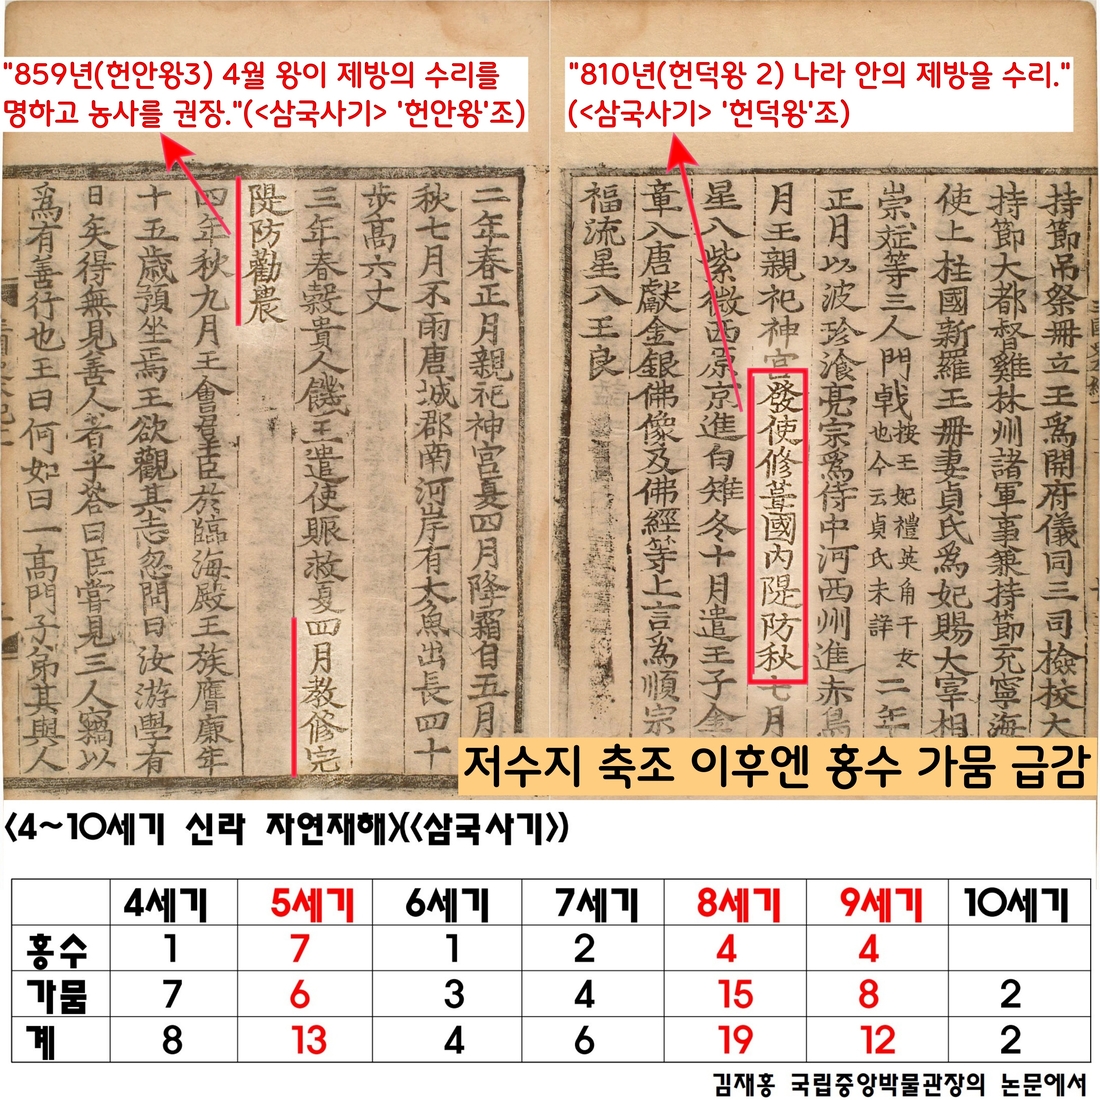 "859년(헌안왕3) 4월 왕이 제방의 수리를
명하고 농사를 권장."(<삼국사기> '헌안왕'조)
"810년(헌덕왕 2) 나라 안의 제방을 수리."
(<삼국사기> '헌덕왕'조)
持節吊祭冊立王爲開府儀同三司檢校大
持節大都督雞林州諸軍事兼持節充寧海
使上柱國新羅王冊妻貞氏爲妃賜大宰相
崇斌等三人門戟 按王妃禮英角干女也今云貞氏未詳 二年
正月以波珍飡亮宗爲侍中河西州進赤烏
月王親祀神宮發使修葺國內隄防秋七月
星入紫微西原京進白雉冬十月遣王子金
章入唐獻金銀佛像及佛經等上言爲順宗
福流星入王良
二年春正月親祀神宮夏四月隆霜自五月
秋七月不雨唐城郡南河岸有大魚出長四十
步高六丈
三年春穀貴人饑王遣使賑救夏四月教修完
隄防勸農
四年秋九月王會羣臣於臨海殿王族膺廉年
十五歲預坐焉王欲觀其志忽問曰汝游學有
日矣得無見善人者乎答曰臣嘗見三人竊以
爲有善行也王曰何如曰一高門子弟其與人
저수지 축조 이후엔 홍수 가뭄 급감
<4~10세기 신라 자연재해>(<삼국사기>)
4세기 5세기 6세기 7세기 8세기 9세기 10세기
홍수 1 7 1 2 4 4
가뭄 7 6 3 4 15 8 2
계 8 13 4 6 19 12 2
김재홍 국립중앙박물관장의 논문에서